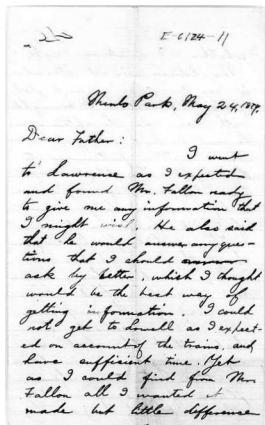 E-6124-11
Menlo Park, May 24, 1879.
Dear Father:
I went
to Lawrence as I expected
and found Mr. Fallon ready
to give me any information that
I might wish. He also said
that he would answer any ques-
tions that I should
ask by letter, which I thought
would be the best way of
getting information. I could
not get to Lowell as I expect-
ed on account of the trains, and
have sufficient time. Yet
as I could find from Mr.
Fallon all I wanted it
made but little difference